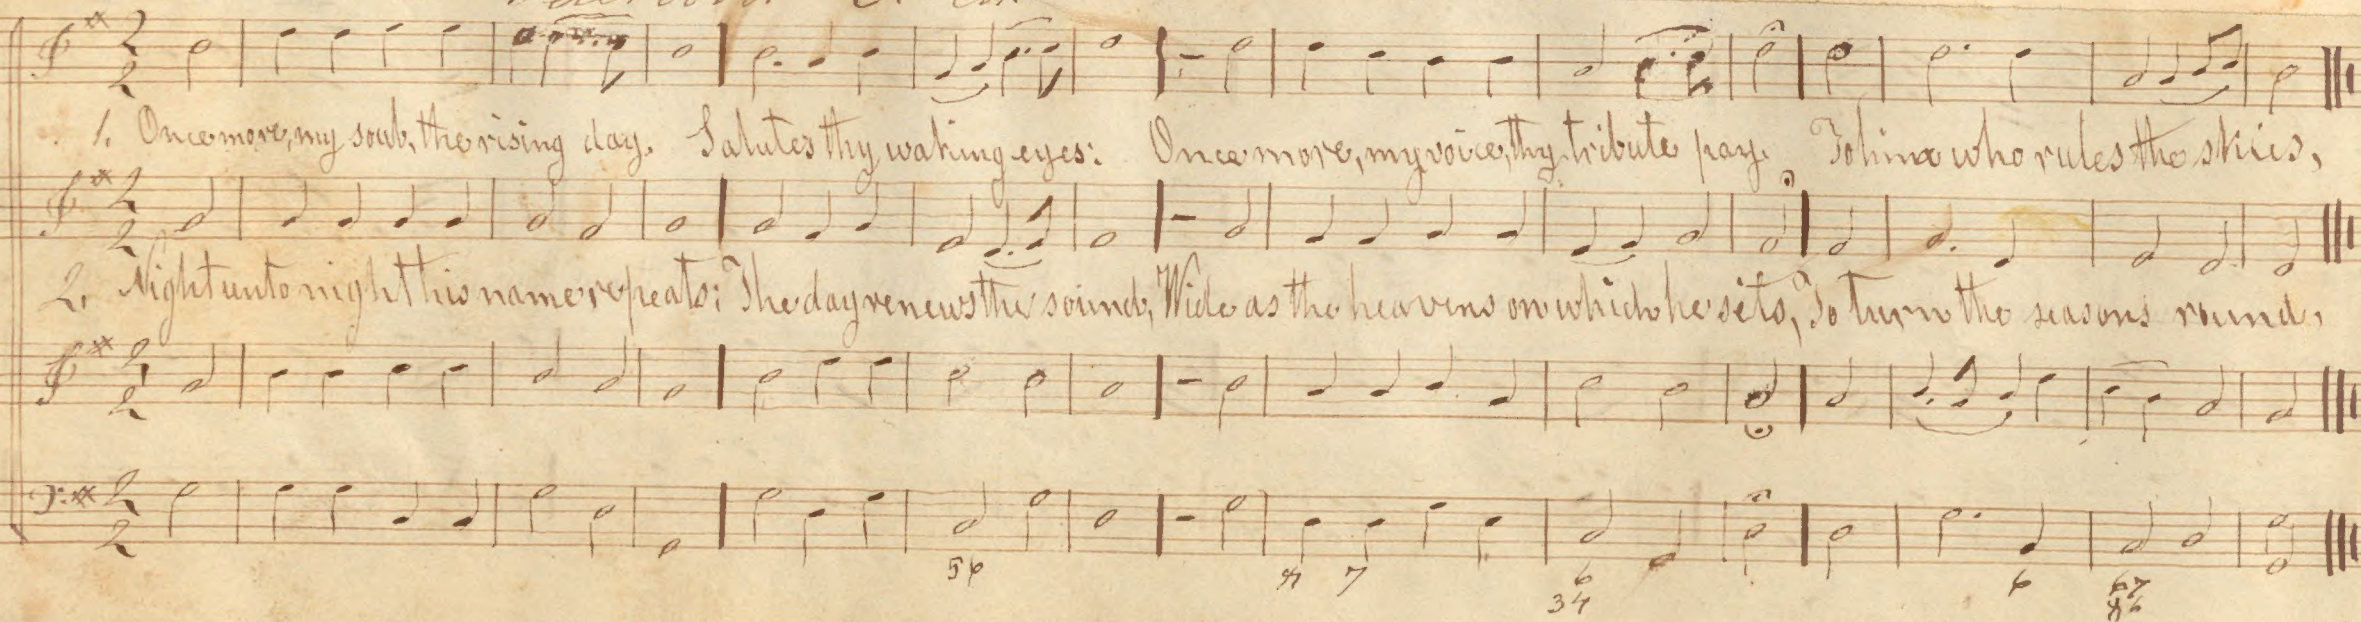 1. Once more, my soul, the rising day. Salutes thy waking eyes: Once more, my voice, thy tribute pay. To him who rules the skies,
2. Night unto night his name repeats: The day renews the sound, Wide as the heavens on which he sits, To turn the seasons round,
5 6
4 7
6
3 4
6
6 7